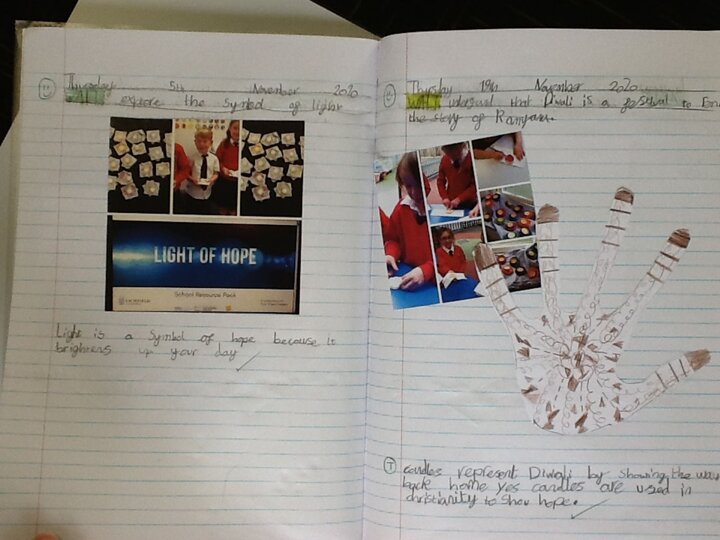 Thursday 5th November 2020
WALT explore the symbol of light
LIGHT OF HOPE
School Resource Pack
Light is a Symbol of hope because it
brightens up your day
Thursday 19th November 2020
WALT understand that Diwali is a festival to
the story of
T
candles represent Diwali by showing the way
back home yes candles are used in
christianity to show hope.